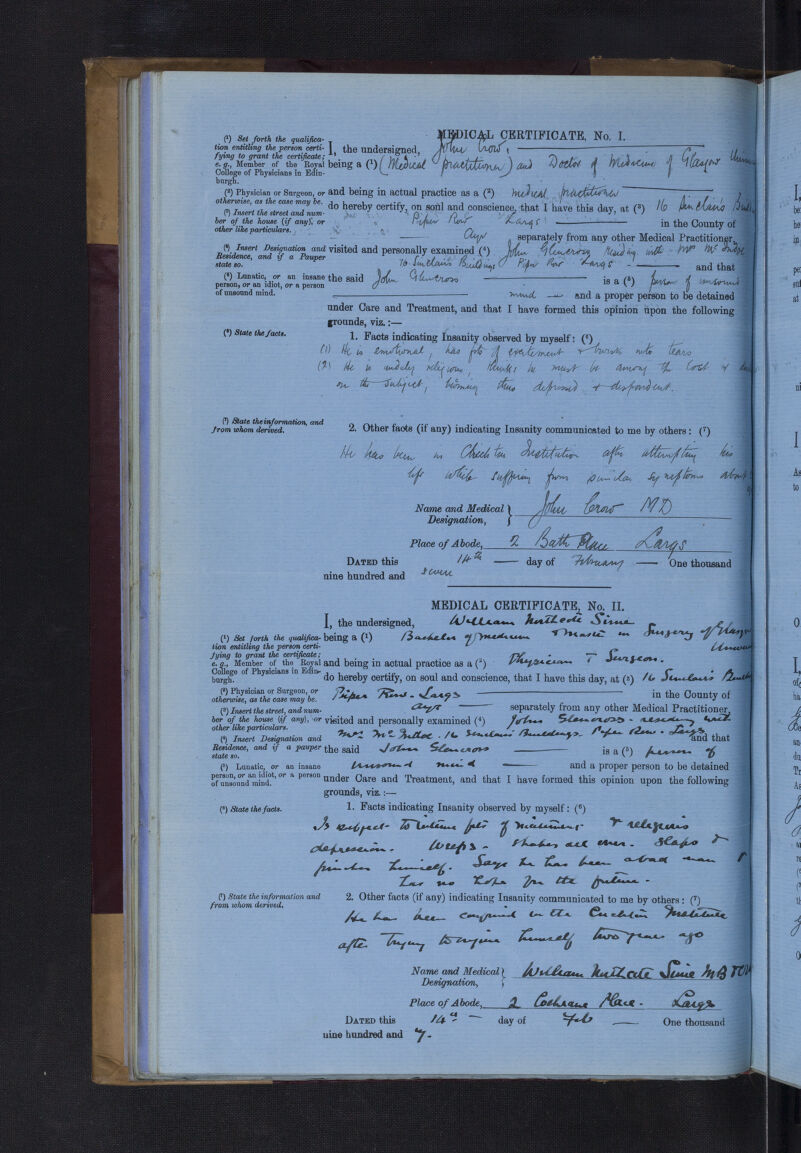 MEDICAL CERTIFICATE, No. I.
(¹) Set forth the qualifica-
tion entitling the person certi-
fying to grant the certificate;
e. g., Member of the Royal
College of Physicians in Edin-
burgh.
I, the undersigned, John Crow,
being a (¹) (Medical practitioner) and Doctor of Medicine of Glasgow
(²) Physician or Surgeon, or
otherwise, as the case may be.
(³) Insert the street and num-
ber of the house (if any), or
other like particulars.
and being in actual practice as a (²) medical practitioner
do hereby certify, on soul and conscience, that I have this day, at (³) 16 Sinclairs
Piper Row Largs in the County of
Ayr separately from any other Medical Practitioner,
(⁴) Insert Designation and
Residence, and if a Pauper
state so.
visited and personally examined (⁴) John Glencross residing with Mrs
16 Sinclairs Buildings Piper Row Largs and that
(⁵) Lunatic, or an insane
person, or an idiot, or a person
of unsound mind.
the said John Glencross is a (⁵) person of unsound
mind and a proper person to be detained
under Care and Treatment, and that I have formed this opinion upon the following
grounds, viz.:—
(⁶) State the facts.
1. Facts indicating Insanity observed by myself: (⁶)
(1) He is emotional, has fits of excitement & bursts into tears
(2) He is unduly religious, thinks he must be among the lost &
on the subject, becoming thus depressed & despondent.
(⁷) State the information, and
from whom derived.
2. Other facts (if any) indicating Insanity communicated to me by others: (⁷)
He has been in Crichton Institution after attempting his
life while suffering from similar symptoms
Name and Medical Designation, John Crow MD
Place of Abode, 2 Bath Place Largs
DATED this 14th day of February One thousand
nine hundred and seven
MEDICAL CERTIFICATE, No. II.
I, the undersigned, William Northcote Sime
(¹) Set forth the qualifica-
tion entitling the person certi-
fying to grant the certificate;
e. g., Member of the Royal
College of Physicians in Edin-
burgh.
being a (¹) Bachelor of medicine & master in Surgery of
and being in actual practice as a (²) Physician & Surgeon.
(²) Physician or Surgeon, or
otherwise, as the case may be.
(³) Insert the street, and num-
ber of the house (if any), or
other like particulars.
do hereby certify, on soul and conscience, that I have this day, at (³) 16 Sinclairs
Piper Row - Largs in the County of
Ayr separately from any other Medical Practitioner,
(⁴) Insert Designation and
Residence, and if a pauper
state so.
visited and personally examined (⁴) John Glencross - residing with
Mrs 16 Sinclairs Buildings. Piper Row - Largs and that
(⁵) Lunatic, or an insane
person, or an idiot, or a person
of unsound mind.
the said John Glencross is a (⁵) person of
unsound mind and a proper person to be detained
under Care and Treatment, and that I have formed this opinion upon the following
grounds, viz.:—
(⁶) State the facts.
1. Facts indicating Insanity observed by myself: (⁶)
Is subject to intense fits of & religious
depression. Weeps - shakes all over. Slaps &
pinches himself. Says he has been a bad man &
has no hope for the future.
(⁷) State the information and
from whom derived.
2. Other facts (if any) indicating Insanity communicated to me by others: (⁷)
He has been confined in the Crichton Institute
after trying to injure himself two years ago
Name and Medical Designation, William Northcote Sime MB
Place of Abode, 2 Cochrane Place - Largs
DATED this 14th day of Feb One thousand
nine hundred and 7.